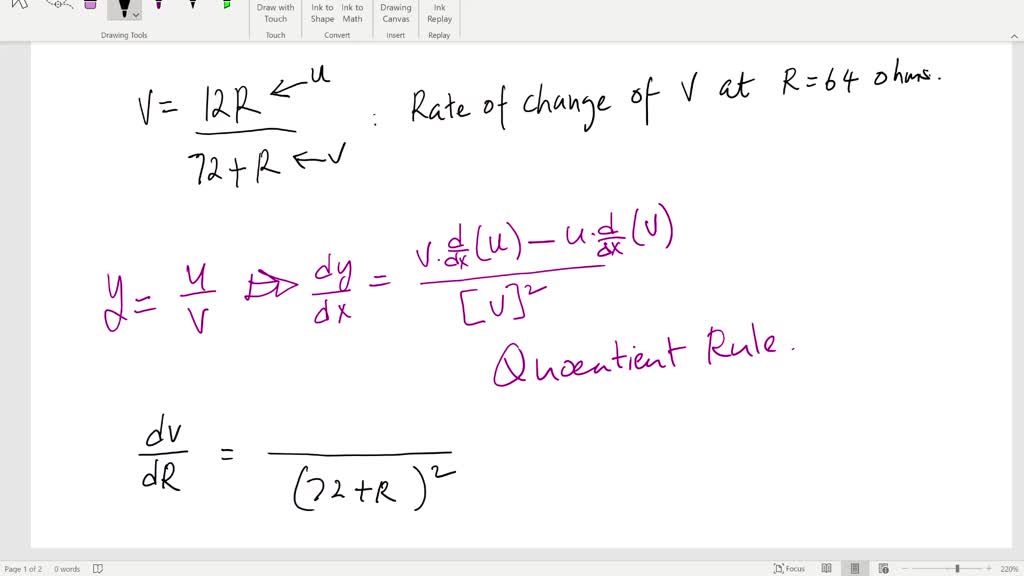 Draw with Touch
Ink to Shape
Ink to Math
Drawing Canvas
Ink Replay
Drawing Tools
Touch
Convert
Insert
Replay
V = 12R ← u
72 + R ← V
: Rate of change of V at R = 64 ohms.
y = u/v ⇒ dy/dx = (v · d/dx (u) − u · d/dx (v)) / [v]²
Quoentient Rule.
dv/dR = / (72 + R)²
Page 1 of 2 0 words
Focus
220%